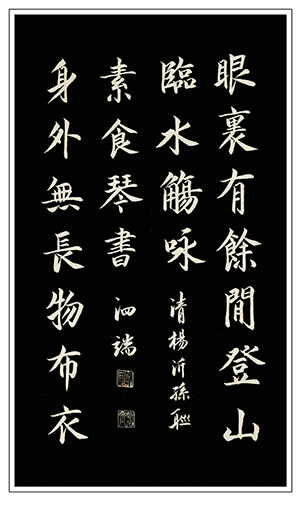 眼裏有餘閒登山
臨水觴咏
清楊沂孫聯
身外無長物布衣
素食琴書
泗端